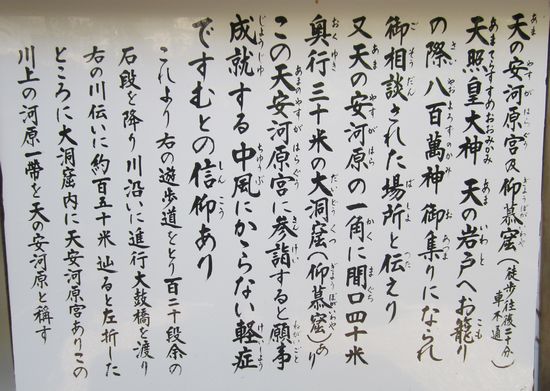 天の安河原宮及仰慕窟（徒歩往復二十分 車不通）
天照皇大神　天の岩戸へお籠り
の際八百萬神御集りになられ
御相談された場所と伝えり
又天の安河原の一角に間口四十米
奥行三十米の大洞窟（仰慕窟）あり
この天安河原宮に参詣すると願事
成就する中風にかゝらない軽症
ですむとの信仰あり
これより右の遊歩道をとり百二十段余の
石段を降り川沿いに進行大鼓橋を渡り
右の川伝いに約百五十米辿ると左折した
ところに大洞窟内に天安河原宮ありこの
川上の河原一帶を天の安河原と稱す